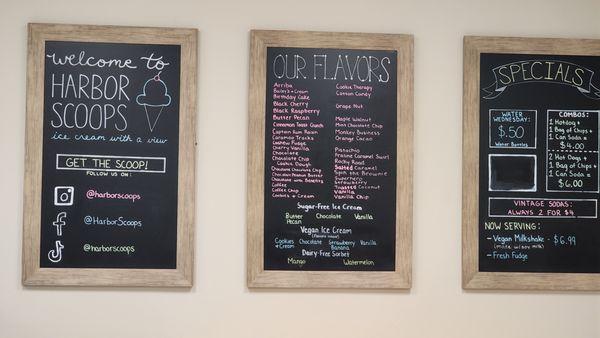 welcome to
HARBOR
SCOOPS
ice cream with a view
GET THE SCOOP!
FOLLOW US ON:
@harborscoops
@HarborScoops
@harborscoops
OUR FLAVORS
Arriba
Birthday Cake
Black Cherry
Black Raspberry
Butter Pecan
Cinnamon Toast Crunch
Captain Rum Raisin
Caramoo Tracks
Cashew Fudge
Cherry Vanilla
Chocolate
Chocolate Chip
Cookie Dough
Chocolate Chocolate Chip
Chocolate Peanut Butter
Chocolate with Benefits
Coffee
Coffee Chip
Cookies + Cream
Cookie Therapy
Cotton Candy
Grape Nut
Maple Walnut
Mint Chocolate Chip
Monkey Business
Orange Cacao
Pistachio
Praline Caramel Swirl
Rocky Road
Salted Caramel
Spin the Brownie
Superhero
Strawberry
Toasted Coconut
Vanilla
Vanilla Chip
Sugar-Free Ice Cream
Butter Pecan
Chocolate
Vanilla
Vegan Ice Cream
Cookies + Cream
Chocolate
Strawberry Banana
Vanilla
Dairy-Free Sorbet
Mango
Watermelon
SPECIALS
WATER
WEDNESDAY:
$.50
Water Bottles
COMBOS:
1 Hotdog +
1 Bag of Chips +
1 Can Soda =
$4.00
2 Hot Dogs +
1 Bag of Chips +
1 Can Soda =
$6.00
VINTAGE SODAS:
ALWAYS 2 FOR $4
NOW SERVING:
- Vegan Milkshake - $6.99
(made w/ soy milk)
- Fresh Fudge